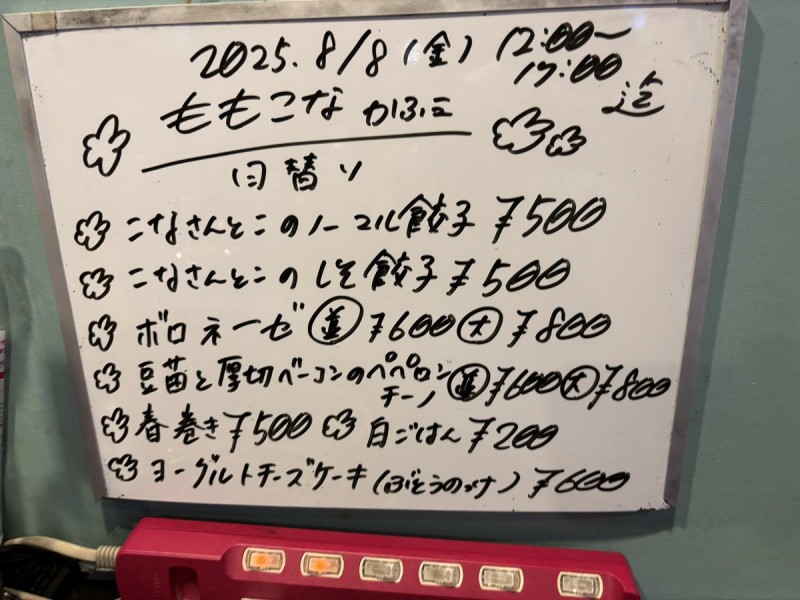 2025.8/8(金) 12:00〜
17:00
迄
ももこな かふぇ
日替り
こなさんとこのノーマル餃子 ¥500
こなさんとこのしそ餃子 ¥500
ボロネーゼ 並 ¥600 大 ¥800
豆苗と厚切ベーコンのペペロン
チーノ 並 ¥600 大 ¥800
春巻き ¥500 白ごはん ¥200
ヨーグルトチーズケーキ(ぶどうのっけ) ¥600